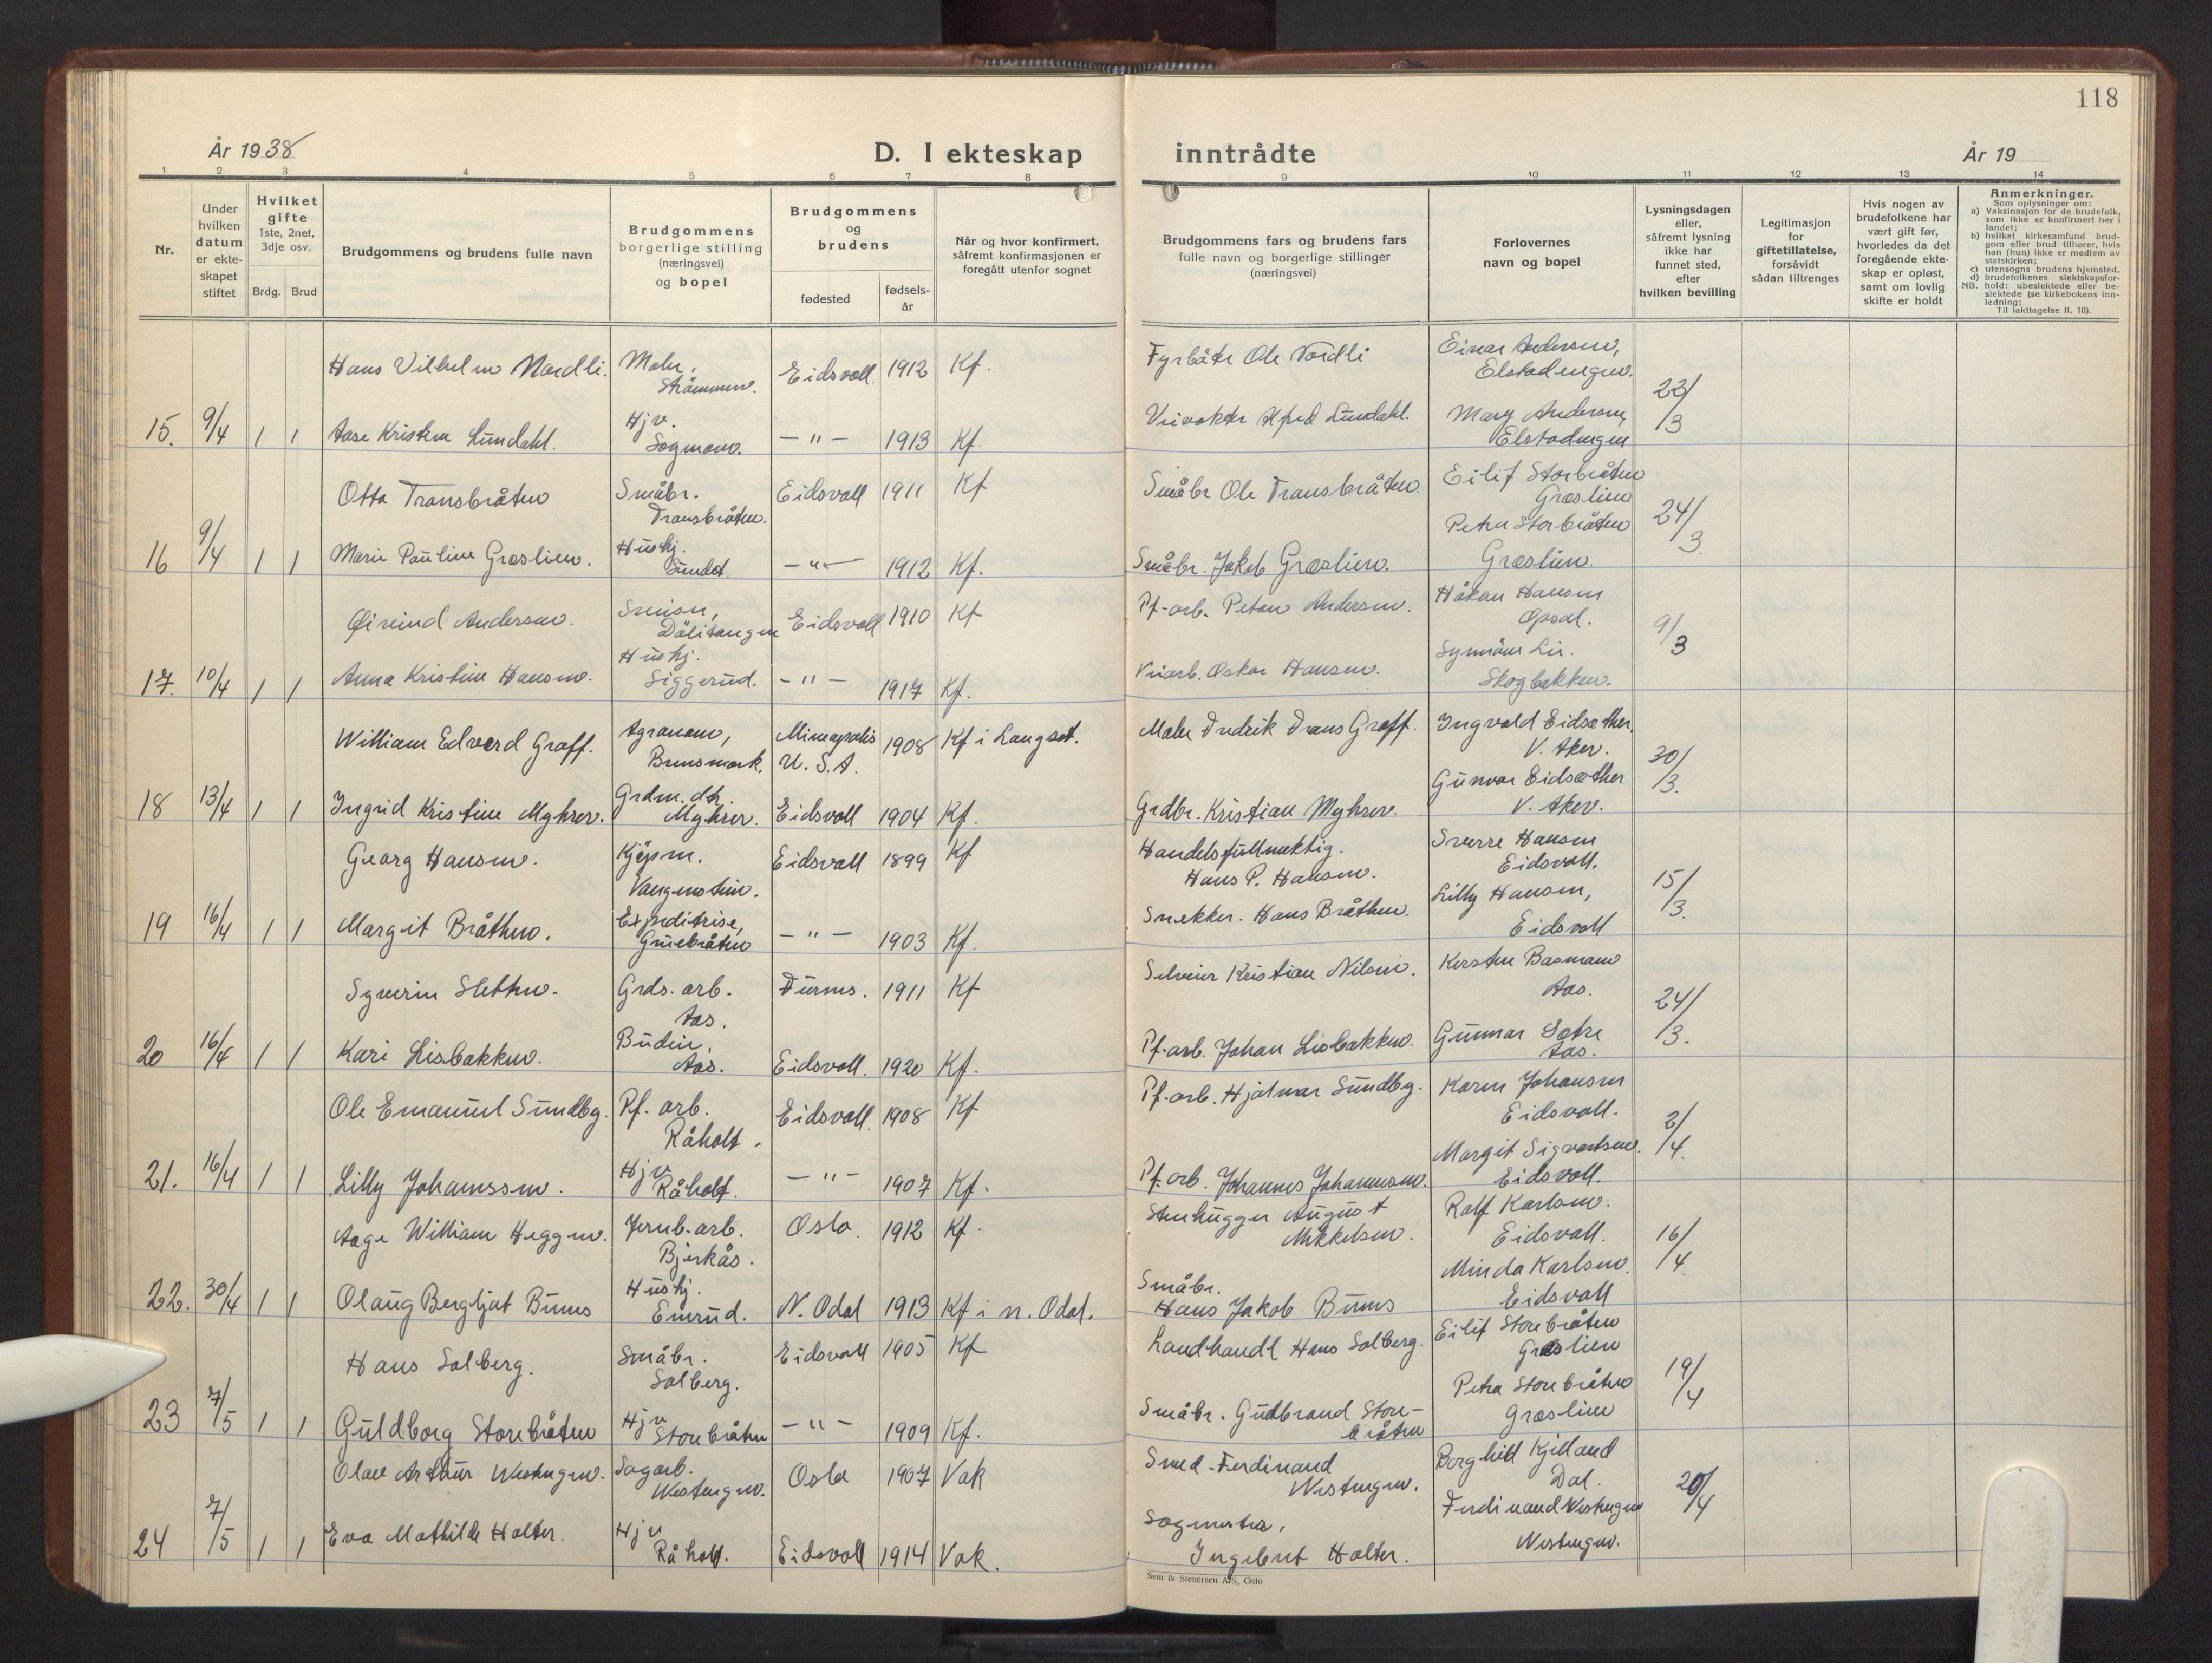 118
År 1938
D. I ekteskap
inntrådte
År 19
1 2 3 4 5 6 7 8 9 10 11 12 13 14
Nr.
Under
hvilken
datum
er ekte-
skapet
stiftet
Hvilket
gifte
1ste, 2net,
3dje osv.
Brdg. Brud
Brudgommens og brudens fulle navn
Brudgommens
borgerlige stilling
(næringsvei)
og bopel
Brudgommens
og
brudens
fødested
fødsels-
år
Når og hvor konfirmert,
såfremt konfirmasjonen er
foregått utenfor sognet
Brudgommens fars og brudens fars
fulle navn og borgerlige stillinger
(næringsvei)
Forlovernes
navn og bopel
Lysningsdagen
eller,
såfremt lysning
ikke har
funnet sted,
efter
hvilken bevilling
Legitimasjon
for
giftetillatelse,
forsåvidt
sådan tiltrenges
Hvis nogen av
brudefolkene har
vært gift før,
hvorledes da det
foregående ekte-
skap er opløst,
samt om lovlig
skifte er holdt
Anmerkninger.
Som oplysninger om:
a) Vaksinasjon for de brudefolk,
som ikke er konfirmert her i
landet;
b) hvilket kirkesamfund brud-
gom eller brud tilhører, hvis
han (hun) ikke er medlem av
statskirken;
c) utensogns brudens hjemsted.
d) brudefolkenes slektskapsfor-
NB. hold: ubeslektede eller be-
slektede (se kirkebokens inn-
ledning;
Til iakttagelse II. 10).
Hans Vilhelm Nordli. Maler, Strømmen. Eidsvoll. 1912 Kf. Fyrbøter Ole Nordli Einar Andersen, Elstadengen.
15. 9/4 1 1 Aase Kristine Lundahl. Hjv. Sogmoen. -"- 1913 Kf. Veivokter Alfred Lundahl. Mary Andersen, Elstadengen 23/3
Otto Transbråten Småbr. Transbråten. Eidsvoll 1911 Kf Småbr Ole Transbråten. Eilif Storbråten Græslien
16 9/4 1 1 Marie Pauline Græslien. Hushj. Sundet. -"- 1912 Kf. Småbr. Jakob Græslien. Petra Storbråten Græslien. 24/3.
Øivind Andersen. Dölitangen Eidsvoll 1910 Kf Pf-arb. Petan Andersen. Håkan Hansen Opsal.
17. 10/4 1 1 Anna Kristine Hansen. Hushj. Siggerud. -"- 1917 Kf. Veiarb. Oskar Hansen. Synnöve Lie. Skogbekken. 9/3
William Edverd Graff. Agronom, Brensmork. Minneapolis U.S.A. 1908 Kf i Langset. Maler Fredrik Frans Graff. Ingvald Eidsæther. V. Aker.
18 13/4 1 1 Ingrid Kristine Myhrer. Grdm. dtr. Myhrer. Eidsvoll 1904 Kf. Grdbr. Kristian Myhrer. Gunvor Eidsæther V. Aker. 30/3.
Georg Hansen. Kjøpm. Vangensteien. Eidsvoll 1899 Kf Handelsfullmektig. Hans P. Hansen. Sverre Hansen Eidsvoll.
19 16/4 1 1 Margit Bråthen. Expeditrise, Gruebråten -"- 1903 Kf. Snekker. Hans Bråthen. Lilly Hansen, Eidsvoll 15/3.
Syverin Sletten. Grds. arb. Aas. Furnes. 1911 Kf Selveier Kristian Nilsen. Kersten Basmoen Aas.
20 16/4 1 1 Kari Lisbakken. Budeie, Aas. Eidsvoll. 1920 Kf. Pf.-arb. Johan Lisbakken. Gunnar Sætre Aas. 24/3.
Ole Emanuel Sundby. Pf. arb. Råholt. Eidsvoll. 1908 Kf Pf.-arb. Hjalmar Sundby. Karen Johansen Eidsvoll.
21. 16/4 1 1 Lilly Johanssen. Hjv Råholt. -"- 1907 Kf. Pf.arb. Johannes Johannesen. Margit Sigvartsen. Eidsvoll. 2/4.
Aage William Heggen. Jernb.arb. Bjerkås. Oslo. 1912 Kf. Stenhugger August Mikkelsen. Rolf Karlsen. Eidsvoll.
22. 30/4 1 1 Olaug Bergljot Buns Hushj. Emrud. N. Odal 1913 Kf i n. Odal. Småbr. Hans Jakob Buns Minda Karlsen. Eidsvoll 16/4.
Hans Solberg. Småbr. Solberg. Eidsvoll 1905 Kf Landhandl Hans Solberg. Eilif Storebråten Græslien
23 7/5 1 1 Guldborg Storebråten Hjv Storebråten -"- 1909 Kf. Småbr. Gudbrand Store-bråten Petra Storebråten Græslien 19/4
Olav Arthur Westengen. Sagarb. Westengen. Oslo 1907 Vak Smed. Ferdinand Westengen. Borghild Kjelland Dal.
24 7/5 1 1 Eva Mathilde Holter. Hjv Råholt. Eidsvoll 1914 Vak. Sagmester, Ingebret Holter. Ferdinand Westengen Westengen. 20/4
Sem & Stenersen A/S, Oslo